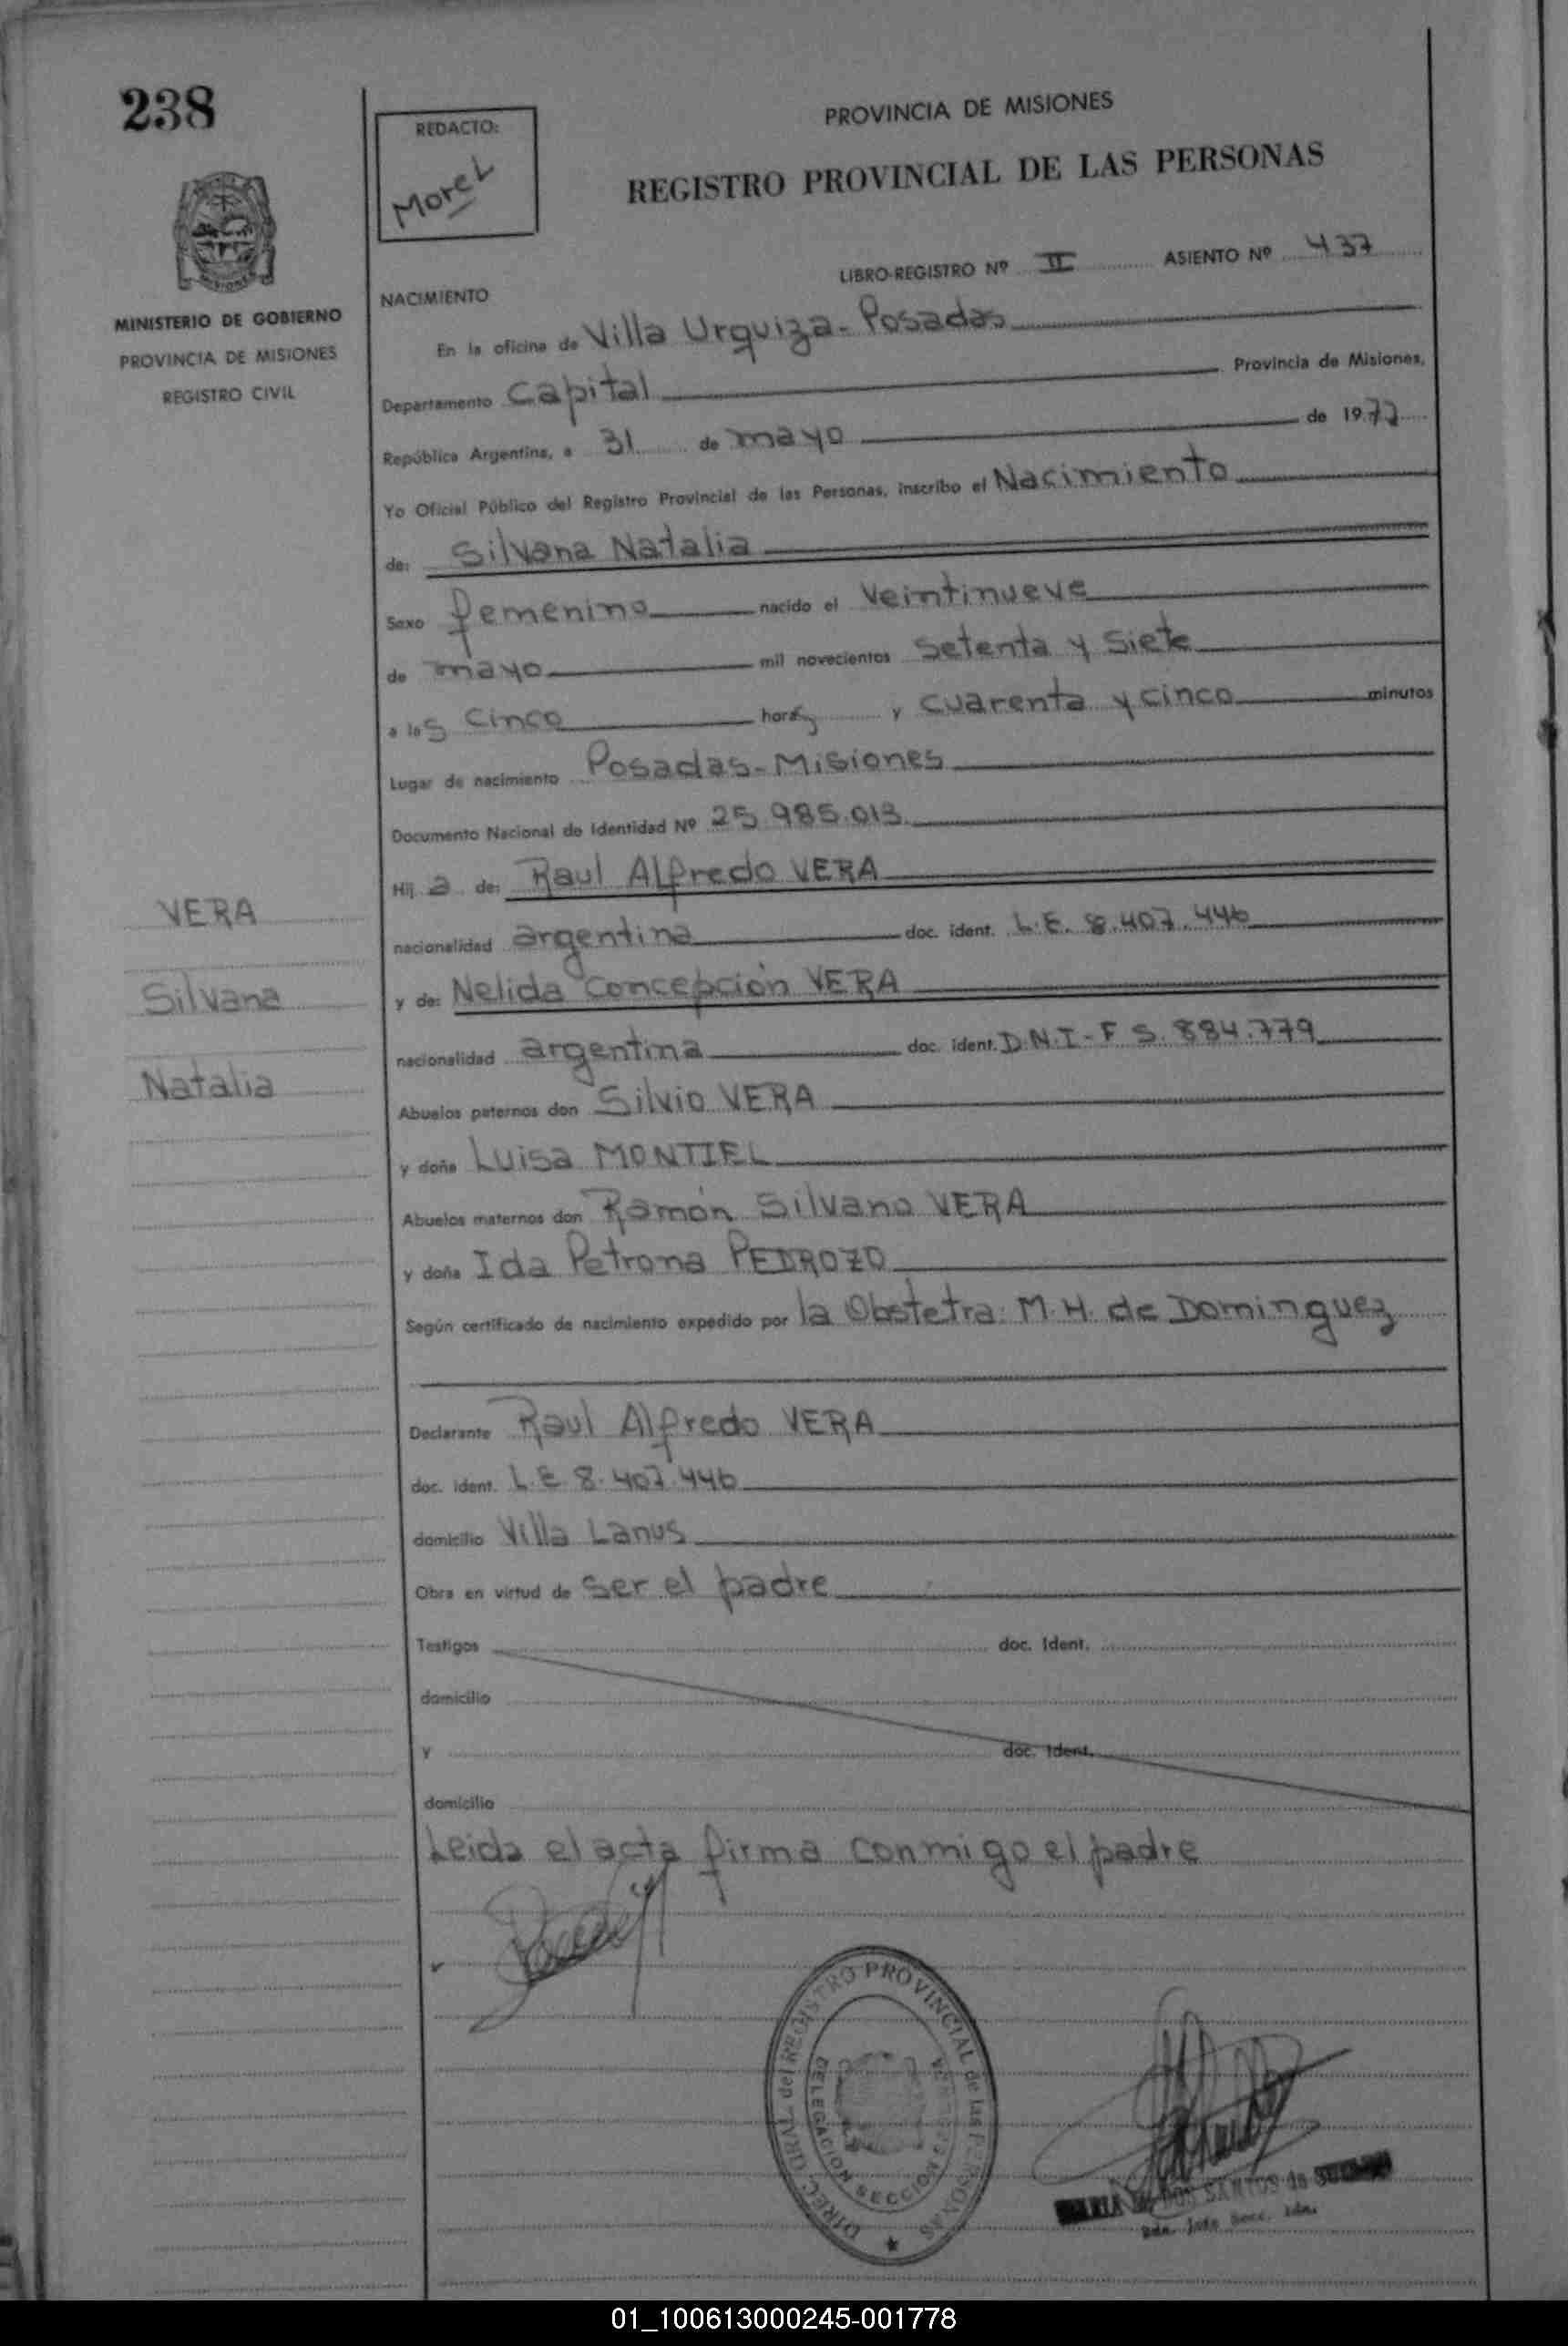 238
REDACTO:
Morel
PROVINCIA DE MISIONES
REGISTRO PROVINCIAL DE LAS PERSONAS
MINISTERIO DE GOBIERNO
PROVINCIA DE MISIONES
REGISTRO CIVIL
LIBRO-REGISTRO Nº II ASIENTO Nº 437
NACIMIENTO
En la oficina de Villa Urquiza - Posadas
Departamento Capital Provincia de Misiones,
República Argentina, a 31 de mayo de 1977
Yo Oficial Público del Registro Provincial de las Personas, inscribo el Nacimiento
de: Silvana Natalia
Sexo femenino nacido el veintinueve
de mayo mil novecientos setenta y siete
a las cinco horas y cuarenta y cinco minutos
Lugar de nacimiento Posadas - Misiones
Documento Nacional de Identidad Nº 25.985.013
Hij a de: Raul Alfredo VERA
nacionalidad argentina doc. ident. L.E. 8.407.446
y de: Nelida Concepción VERA
nacionalidad argentina doc. ident. D.N.I - F 5.884.779
Abuelos paternos don Silvio VERA
y doña Luisa MONTIEL
Abuelos maternos don Ramón Silvano VERA
y doña Ida Petrona PEDROZO
Según certificado de nacimiento expedido por la Obstetra: M.H. de Dominguez
Declarante Raul Alfredo VERA
doc. ident. L.E 8.407.446
domicilio Villa Lanus
Obra en virtud de ser el padre
Testigos doc. Ident.
domicilio
Y doc. Ident.
domicilio
Leida el acta firma conmigo el padre
VERA
Silvana
Natalia
DIREC. GRAL. del REGISTRO PROVINCIAL de las PERSONAS
DELEGACION SECCION
DOS SANTOS de
01_100613000245-001778